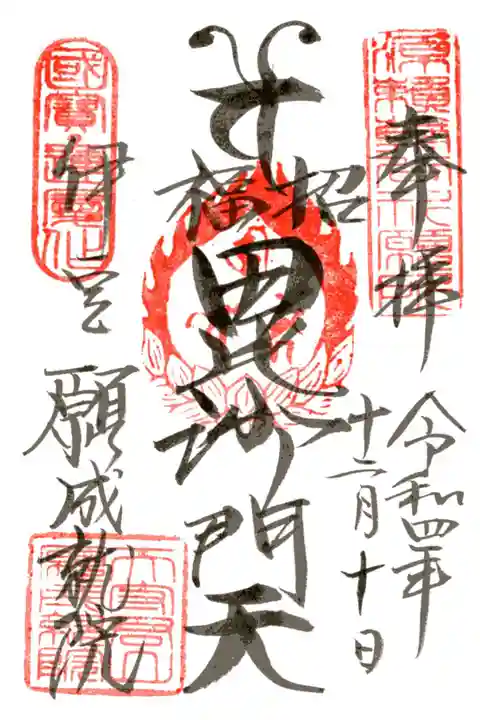 奉拝
令和四年
十二月十日
招福
毘沙門天
伊豆
願成就院
國寶運慶作